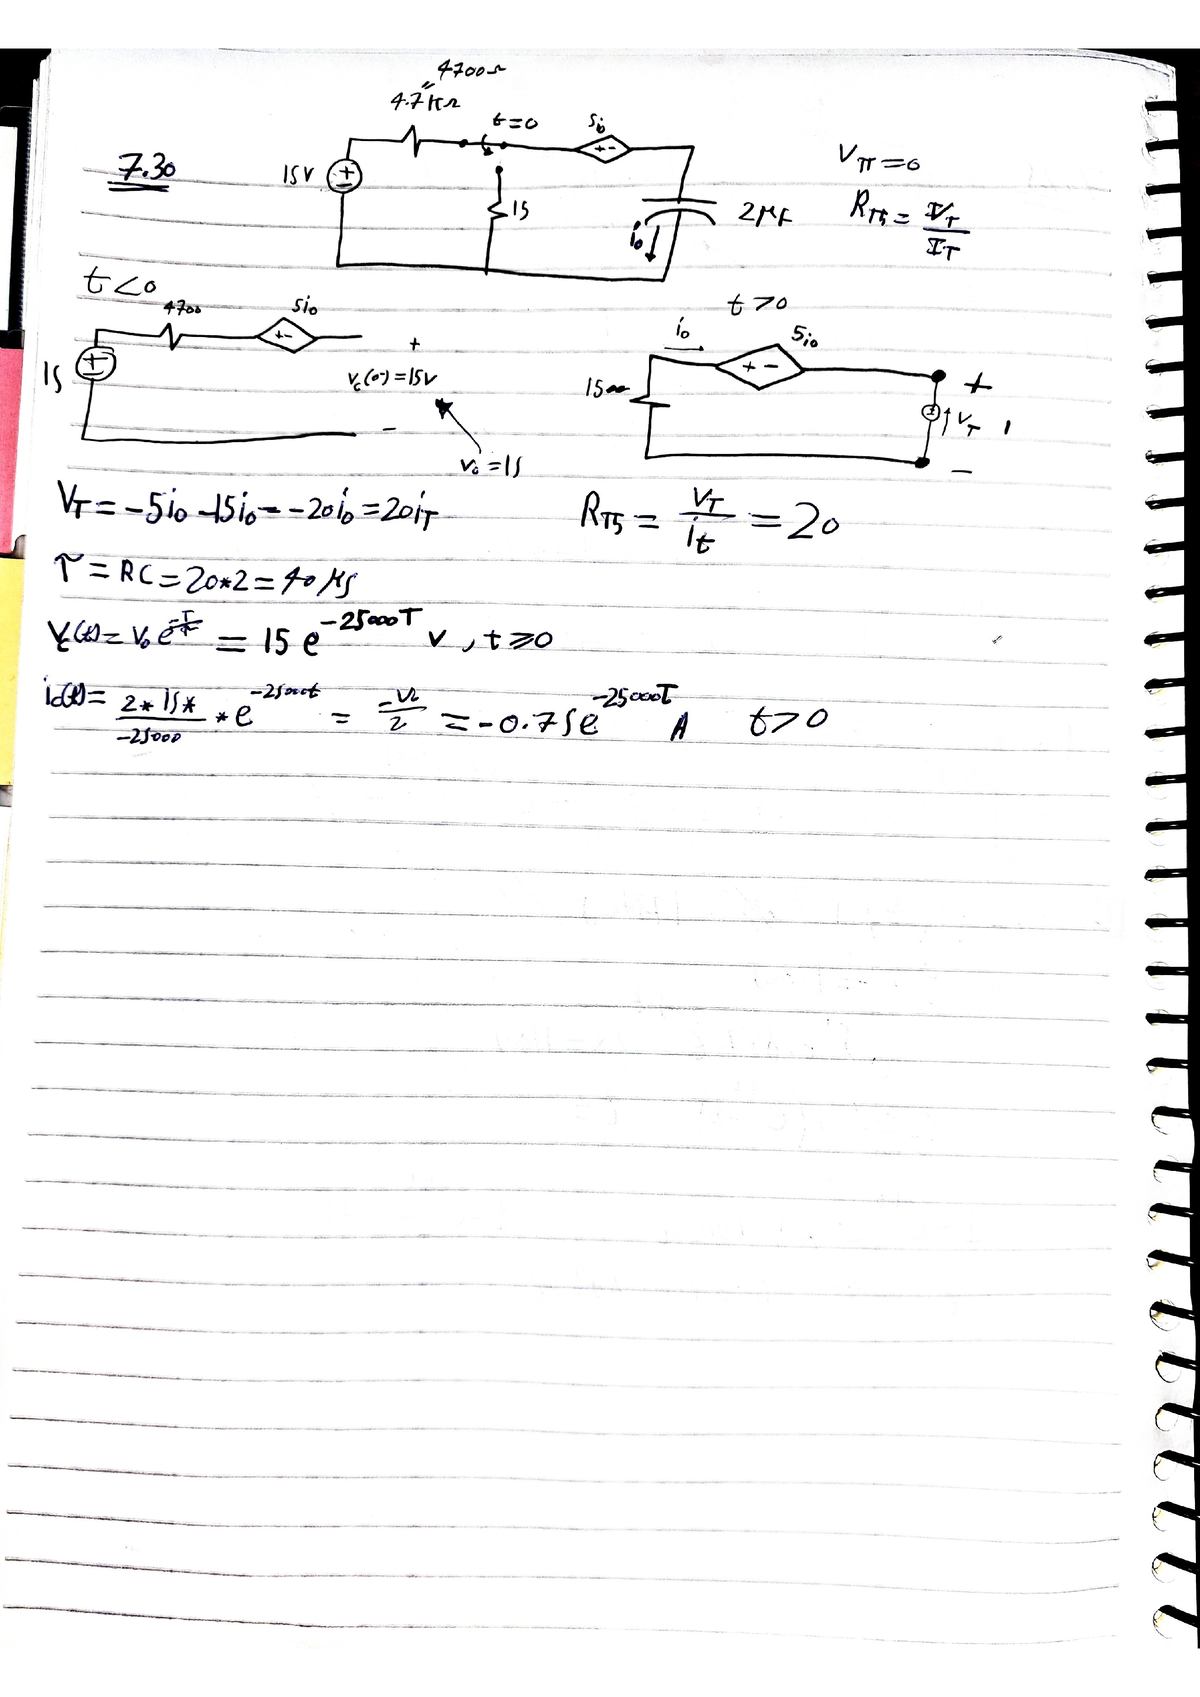 7.30
4700Ω
4.7kΩ
t=0
5i₀
15V
15
i₀
2μF
V_TH=0
R_TH = V_T / I_T
t<0
4700
5i₀
15
+
v_c(0-)=15V
-
v₀=15
t>0
i₀
5i₀
15
+
V_T
-
V_T = -5i₀ -15i₀ = -20i₀ = 20i_T
R_TH = V_T / i_t = 20
τ = RC = 20*2 = 40 μs
V_c(t) = V₀ e^(-T/τ) = 15 e^(-25000T) V , t≥0
i₀(t) = (2*15*) / (-25000) * e^(-25000t) = / 2 = -0.75e^(-25000T) A t>0